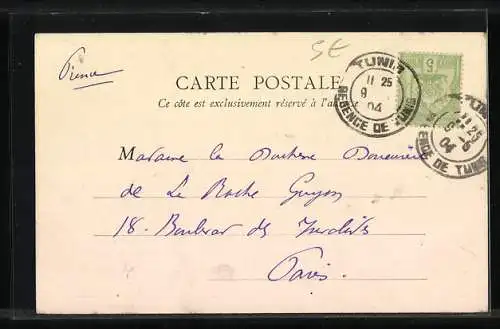 5t
Prince
CARTE POSTALE
Ce côté est exclusivement réservé à l'adresse
TUNIS
11 25
9
04
REGENCE DE TUNIS
5
TUNIS
11 25
9 - 6
04
REGENCE DE TUNIS
Madame la Duchesse Douairière
de La Roche Guyon
18. Boulevard des Invalides
Paris